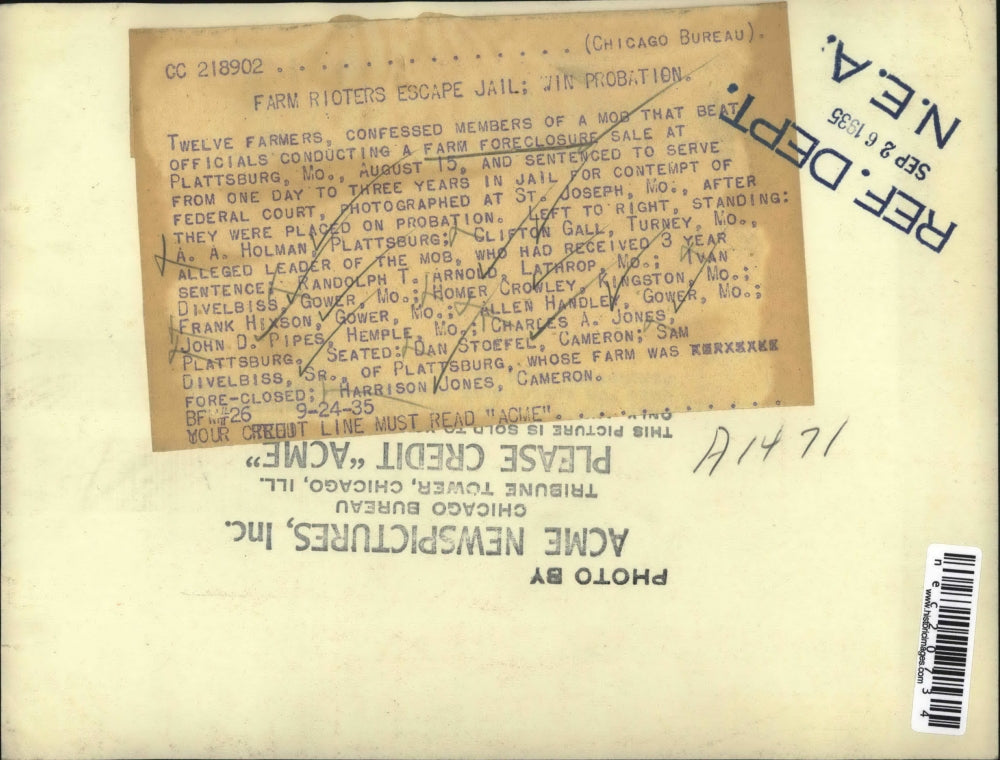 CC 218902 . . . . . . . . . . . . . . . (CHICAGO BUREAU).
FARM RIOTERS ESCAPE JAIL; WIN PROBATION.
TWELVE FARMERS, CONFESSED MEMBERS OF A MOB THAT BEAT
OFFICIALS CONDUCTING A FARM FORECLOSURE SALE AT
PLATTSBURG, MO., AUGUST 15, AND SENTENCED TO SERVE
FROM ONE DAY TO THREE YEARS IN JAIL FOR CONTEMPT OF
FEDERAL COURT, PHOTOGRAPHED AT ST. JOSEPH, MO., AFTER
THEY WERE PLACED ON PROBATION. LEFT TO RIGHT, STANDING:
A. A. HOLMAN, PLATTSBURG; CLIFTON GALL, TURNEY, MO.,
ALLEGED LEADER OF THE MOB, WHO HAD RECEIVED 3 YEAR
SENTENCE; RANDOLPH T. ARNOLD, LATHROP, MO.; IVAN
DIVELBISS, GOWER, MO.; HOMER CROWLEY, KINGSTON, MO.;
FRANK HIXSON, GOWER, MO.; ALLEN HANDLEY, GOWER, MO.;
JOHN D. PIPES, HEMPLE, MO.; CHARLES A. JONES,
PLATTSBURG, SEATED: DAN STOEFEL, CAMERON; SAM
DIVELBISS, SR., OF PLATTSBURG, WHOSE FARM WAS
FORE-CLOSED; HARRISON JONES, CAMERON.
BFM#26 9-24-35
YOUR CREDIT LINE MUST READ "ACME". . . . . . . . . .
REF. DEPT.
SEP 26 1935
N.E.A.
A1471
PHOTO BY
ACME NEWSPICTURES, Inc.
CHICAGO BUREAU
TRIBUNE TOWER, CHICAGO, ILL.
PLEASE CREDIT "ACME"
THIS PICTURE IS SOLD TO
nec20734
www.historicimages.com